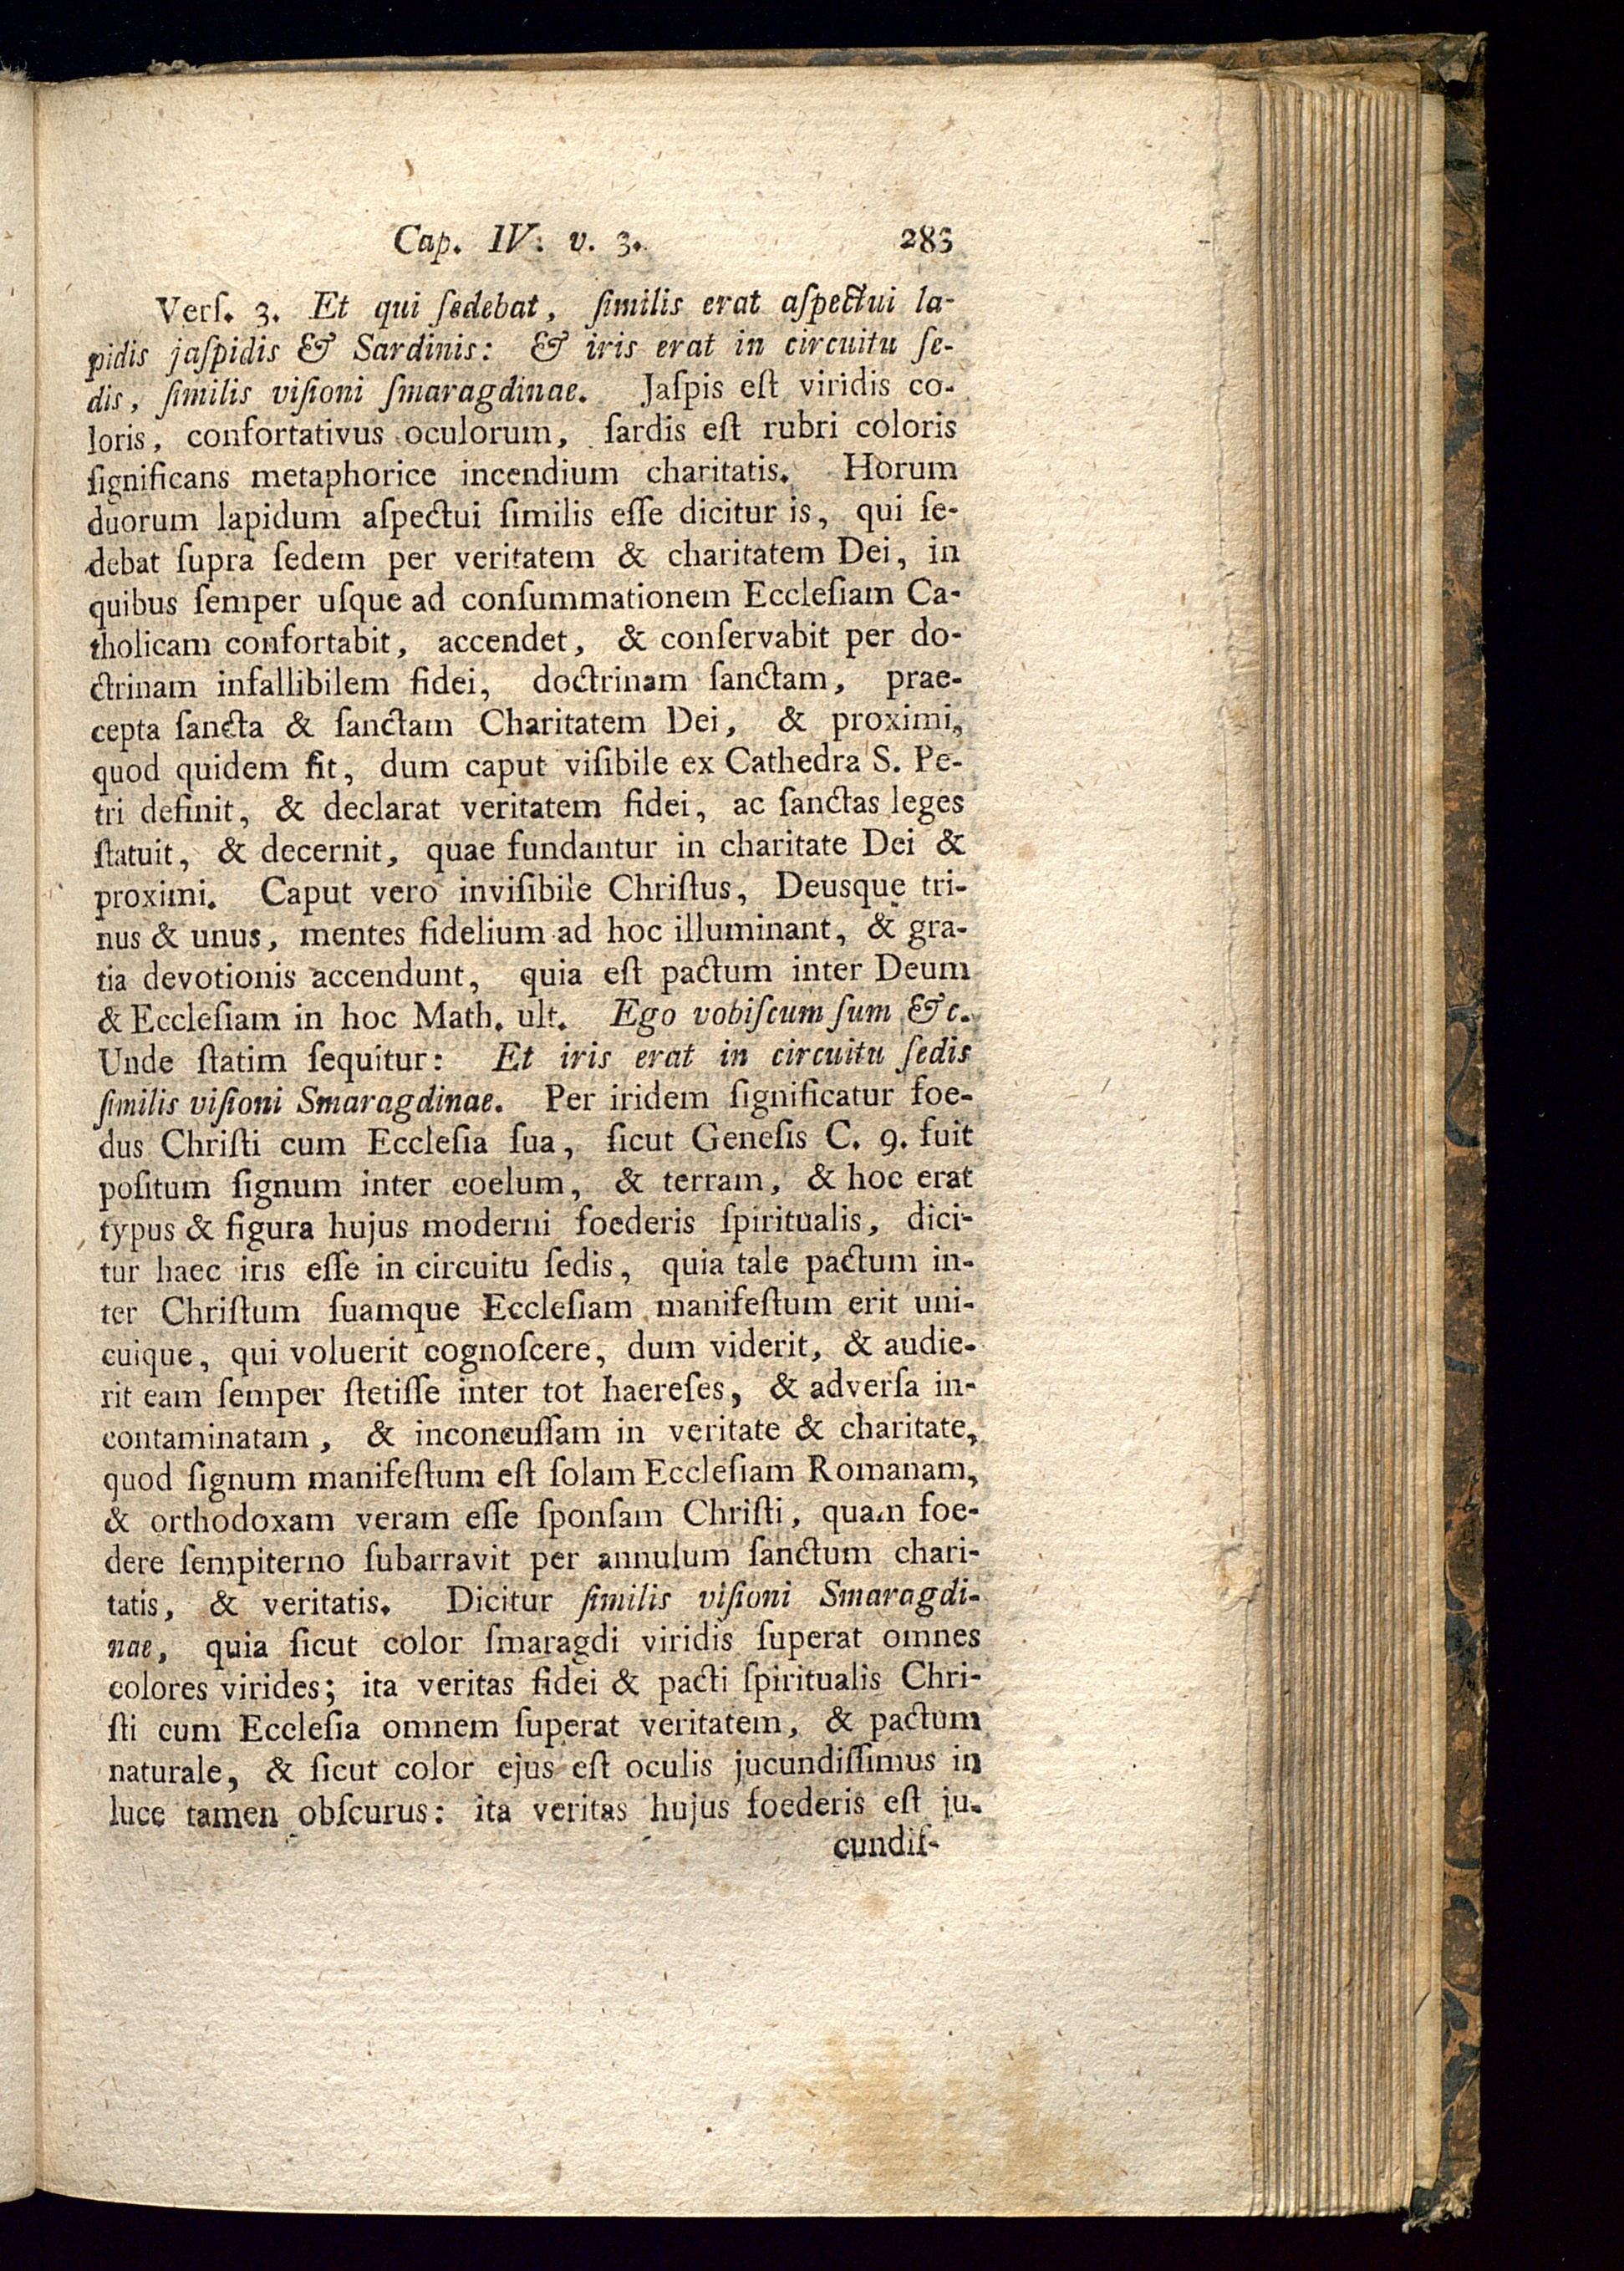 Cap. IV. v. 3. 283
Verſ. 3. Et qui ſedebat, ſimilis erat aſpectui la-
pidis jaſpidis & Sardinis: & iris erat in circuitu ſe-
dis, ſimilis viſioni ſmaragdinae. Jaſpis eſt viridis co-
loris, confortativus oculorum, ſardis eſt rubri coloris
ſignificans metaphorice incendium charitatis. Horum
duorum lapidum aſpectui ſimilis eſſe dicitur is, qui ſe-
debat ſupra ſedem per veritatem & charitatem Dei, in
quibus ſemper uſque ad conſummationem Eccleſiam Ca-
tholicam confortabit, accendet, & conſervabit per do-
ctrinam infallibilem fidei, doctrinam ſanctam, prae-
cepta ſancta & ſanctam Charitatem Dei, & proximi,
quod quidem fit, dum caput viſibile ex Cathedra S. Pe-
tri definit, & declarat veritatem fidei, ac ſanctas leges
ſtatuit, & decernit, quae fundantur in charitate Dei &
proximi. Caput vero inviſibile Chriſtus, Deusque tri-
nus & unus, mentes fidelium ad hoc illuminant, & gra-
tia devotionis accendunt, quia eſt pactum inter Deum
& Eccleſiam in hoc Math. ult. Ego vobiſcum ſum &c.
Unde ſtatim ſequitur: Et iris erat in circuitu ſedis
ſimilis viſioni Smaragdinae. Per iridem ſignificatur foe-
dus Chriſti cum Eccleſia ſua, ſicut Geneſis C. 9. fuit
poſitum ſignum inter coelum, & terram, & hoc erat
typus & figura hujus moderni foederis ſpiritualis, dici-
tur haec iris eſſe in circuitu ſedis, quia tale pactum in-
ter Chriſtum ſuamque Eccleſiam manifeſtum erit uni-
cuique, qui voluerit cognoſcere, dum viderit, & audie-
rit eam ſemper ſtetiſſe inter tot haereſes, & adverſa in-
contaminatam, & inconcuſſam in veritate & charitate,
quod ſignum manifeſtum eſt ſolam Eccleſiam Romanam,
& orthodoxam veram eſſe ſponſam Chriſti, quam foe-
dere ſempiterno ſubarravit per annulum ſanctum chari-
tatis, & veritatis. Dicitur ſimilis viſioni Smaragdi-
nae, quia ſicut color ſmaragdi viridis ſuperat omnes
colores virides; ita veritas fidei & pacti ſpiritualis Chri-
ſti cum Eccleſia omnem ſuperat veritatem, & pactum
naturale, & ſicut color ejus eſt oculis jucundiſſimus in
luce tamen obſcurus: ita veritas hujus foederis eſt ju-
cundiſ-